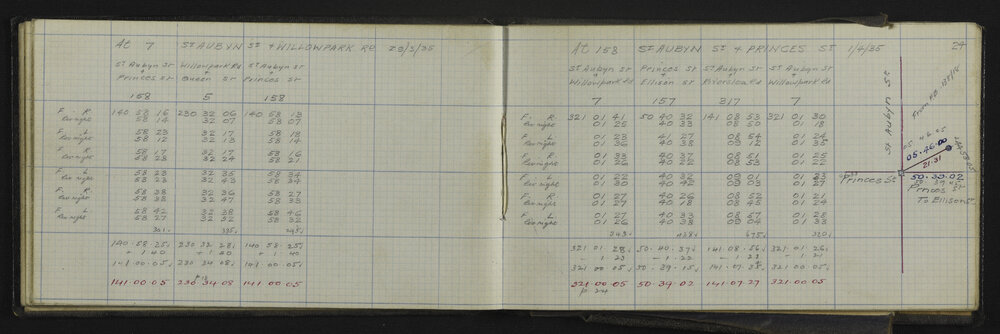 At 7 St AUBYN St & WILLOWPARK Rd 29/3/35
St Aubyn St Willowpark Rd St Aubyn St
+ + +
Princes St Queen St Princes St
158 5 158
F. R 140 58 16 230 32 06 140 58 13
Rev night 58 14 32 07 58 07
F L 58 23 32 17 58 18
Rev night 58 12 32 13 58 14
F. R 58 17 32 17 58 16
Rev night 58 28 32 24 58 21
F. L 58 23 32 35 58 34
Rev night 58 23 32 43 58 34
F. R 58 38 32 36 58 27
Rev night 58 38 32 47 58 33
F L 58 42 32 38 58 46
Rev night 58 27 32 32 58 32
301. 335. 295.
140.58 25 230 32 28 140 58.25
+ 1 40 + 1 40 + 1.40
141.00.05 230 34 08 141.00.05
141.00.05 230.34.08 141.00.05
At 158 St AUBYN St & PRINCES St 1/4/35 24
St Aubyn St Princes St St Aubyn St St Aubyn St
+ + + +
Willowpark Rd Ellison St Riverslea Rd Willowpark Rd
7 157 317 7
F. R 321 01 41 50 40 32 141 08 53 321 01 30
Rev night 01 25 40 33 08 50 01 18
F L 01 23 41 27 08 54 01 24
Rev night 01 36 40 38 09 12 01 35
F. R 01 33 40 37 08 51 01 25
Rev night 01 36 40 36 08 53 01 22
F. L 01 22 40 32 09 01 01 23
Rev night 01 30 40 42 09 03 01 27
F. R 01 27 40 26 08 52 01 21
Rev night 01 27 40 18 08 45 01 24
F L 01 27 40 33 08 57 01 28
Rev night 01 26 40 38 09 04 01 33
343. 438. 675. 320.
321 01 28 50.40.37 141.08.56 321.01.26
- 1 23 - 1.22 - 1 21
321 00 05 50.39.15 141.07.35 321 00 05
321.00.05 50.39.02 141.07.27 321.00.05
p. 24
St Aubyn St
05.46.05
05.46.00
21.31
Princes St
50.39.02
Princes St
To Ellison St.